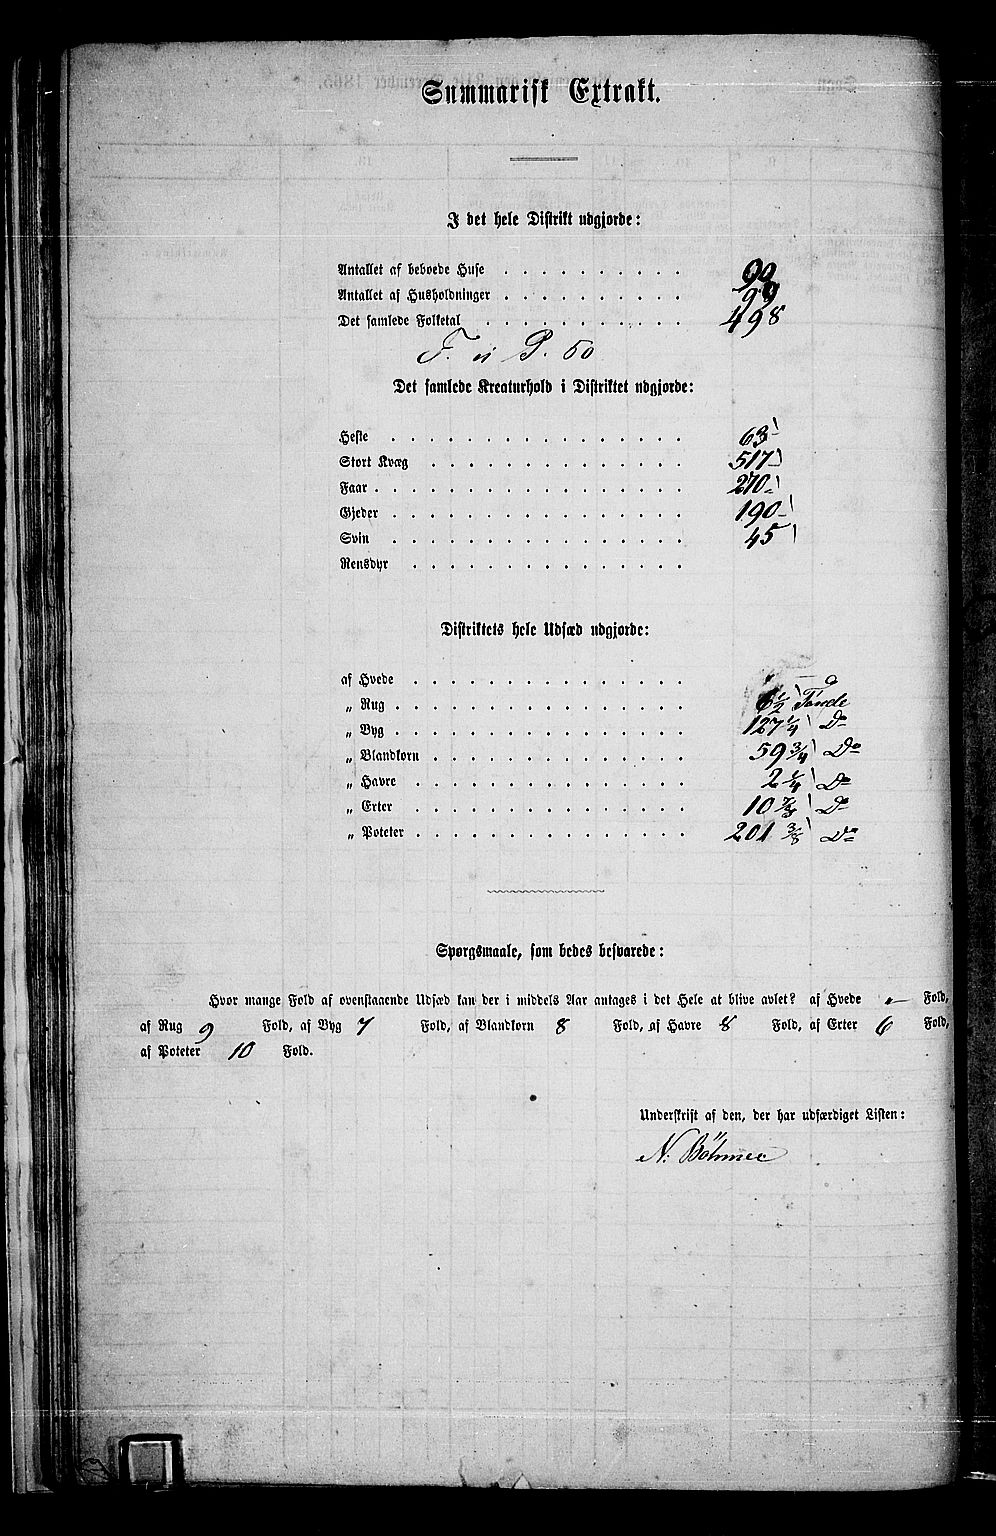 Summarisk Extrakt.
I det hele Distrikt udgjorde:
Antallet af beboede Huse . . . . . . . . . . 99
Antallet af Husholdninger . . . . . . . . . . 99
Det samlede Folketal . . . . . . . . . . . 498
F. P. 50
Det samlede Kreaturhold i Distriktet udgjorde:
Heste . . . . . . . . . . . . . . . . 63
Stort Kvæg . . . . . . . . . . . . . . 517
Faar . . . . . . . . . . . . . . . . . 270
Gjeder . . . . . . . . . . . . . . . . 190
Svin . . . . . . . . . . . . . . . . 45
Rensdyr . . . . . . . . . . . . . . .
Distriktets hele Udsæd udgjorde:
af Hvede . . . . . . . . . . . . . . .
„ Rug . . . . . . . . . . . . . . . . 6½ Tønde
„ Byg . . . . . . . . . . . . . . . . 127¼ Do
„ Blandkorn . . . . . . . . . . . . . . 59¾ Do
„ Havre . . . . . . . . . . . . . . . 2¼ Do
„ Erter . . . . . . . . . . . . . . . 10⅞ Do
„ Poteter . . . . . . . . . . . . . . . 201⅜ Do
Spørgsmaale, som bedes besvarede:
Hvor mange Fold af ovenstaaende Udsæd kan der i middels Aar antages i det Hele at blive avlet? af Hvede „— Fold,
af Rug 9 Fold, af Byg 7 Fold, af Blandkorn 8 Fold, af Havre 8 Fold, af Erter 6 Fold,
af Poteter 10 Fold.
Underskrift af den, der har udfærdiget Listen:
N. Böhmer